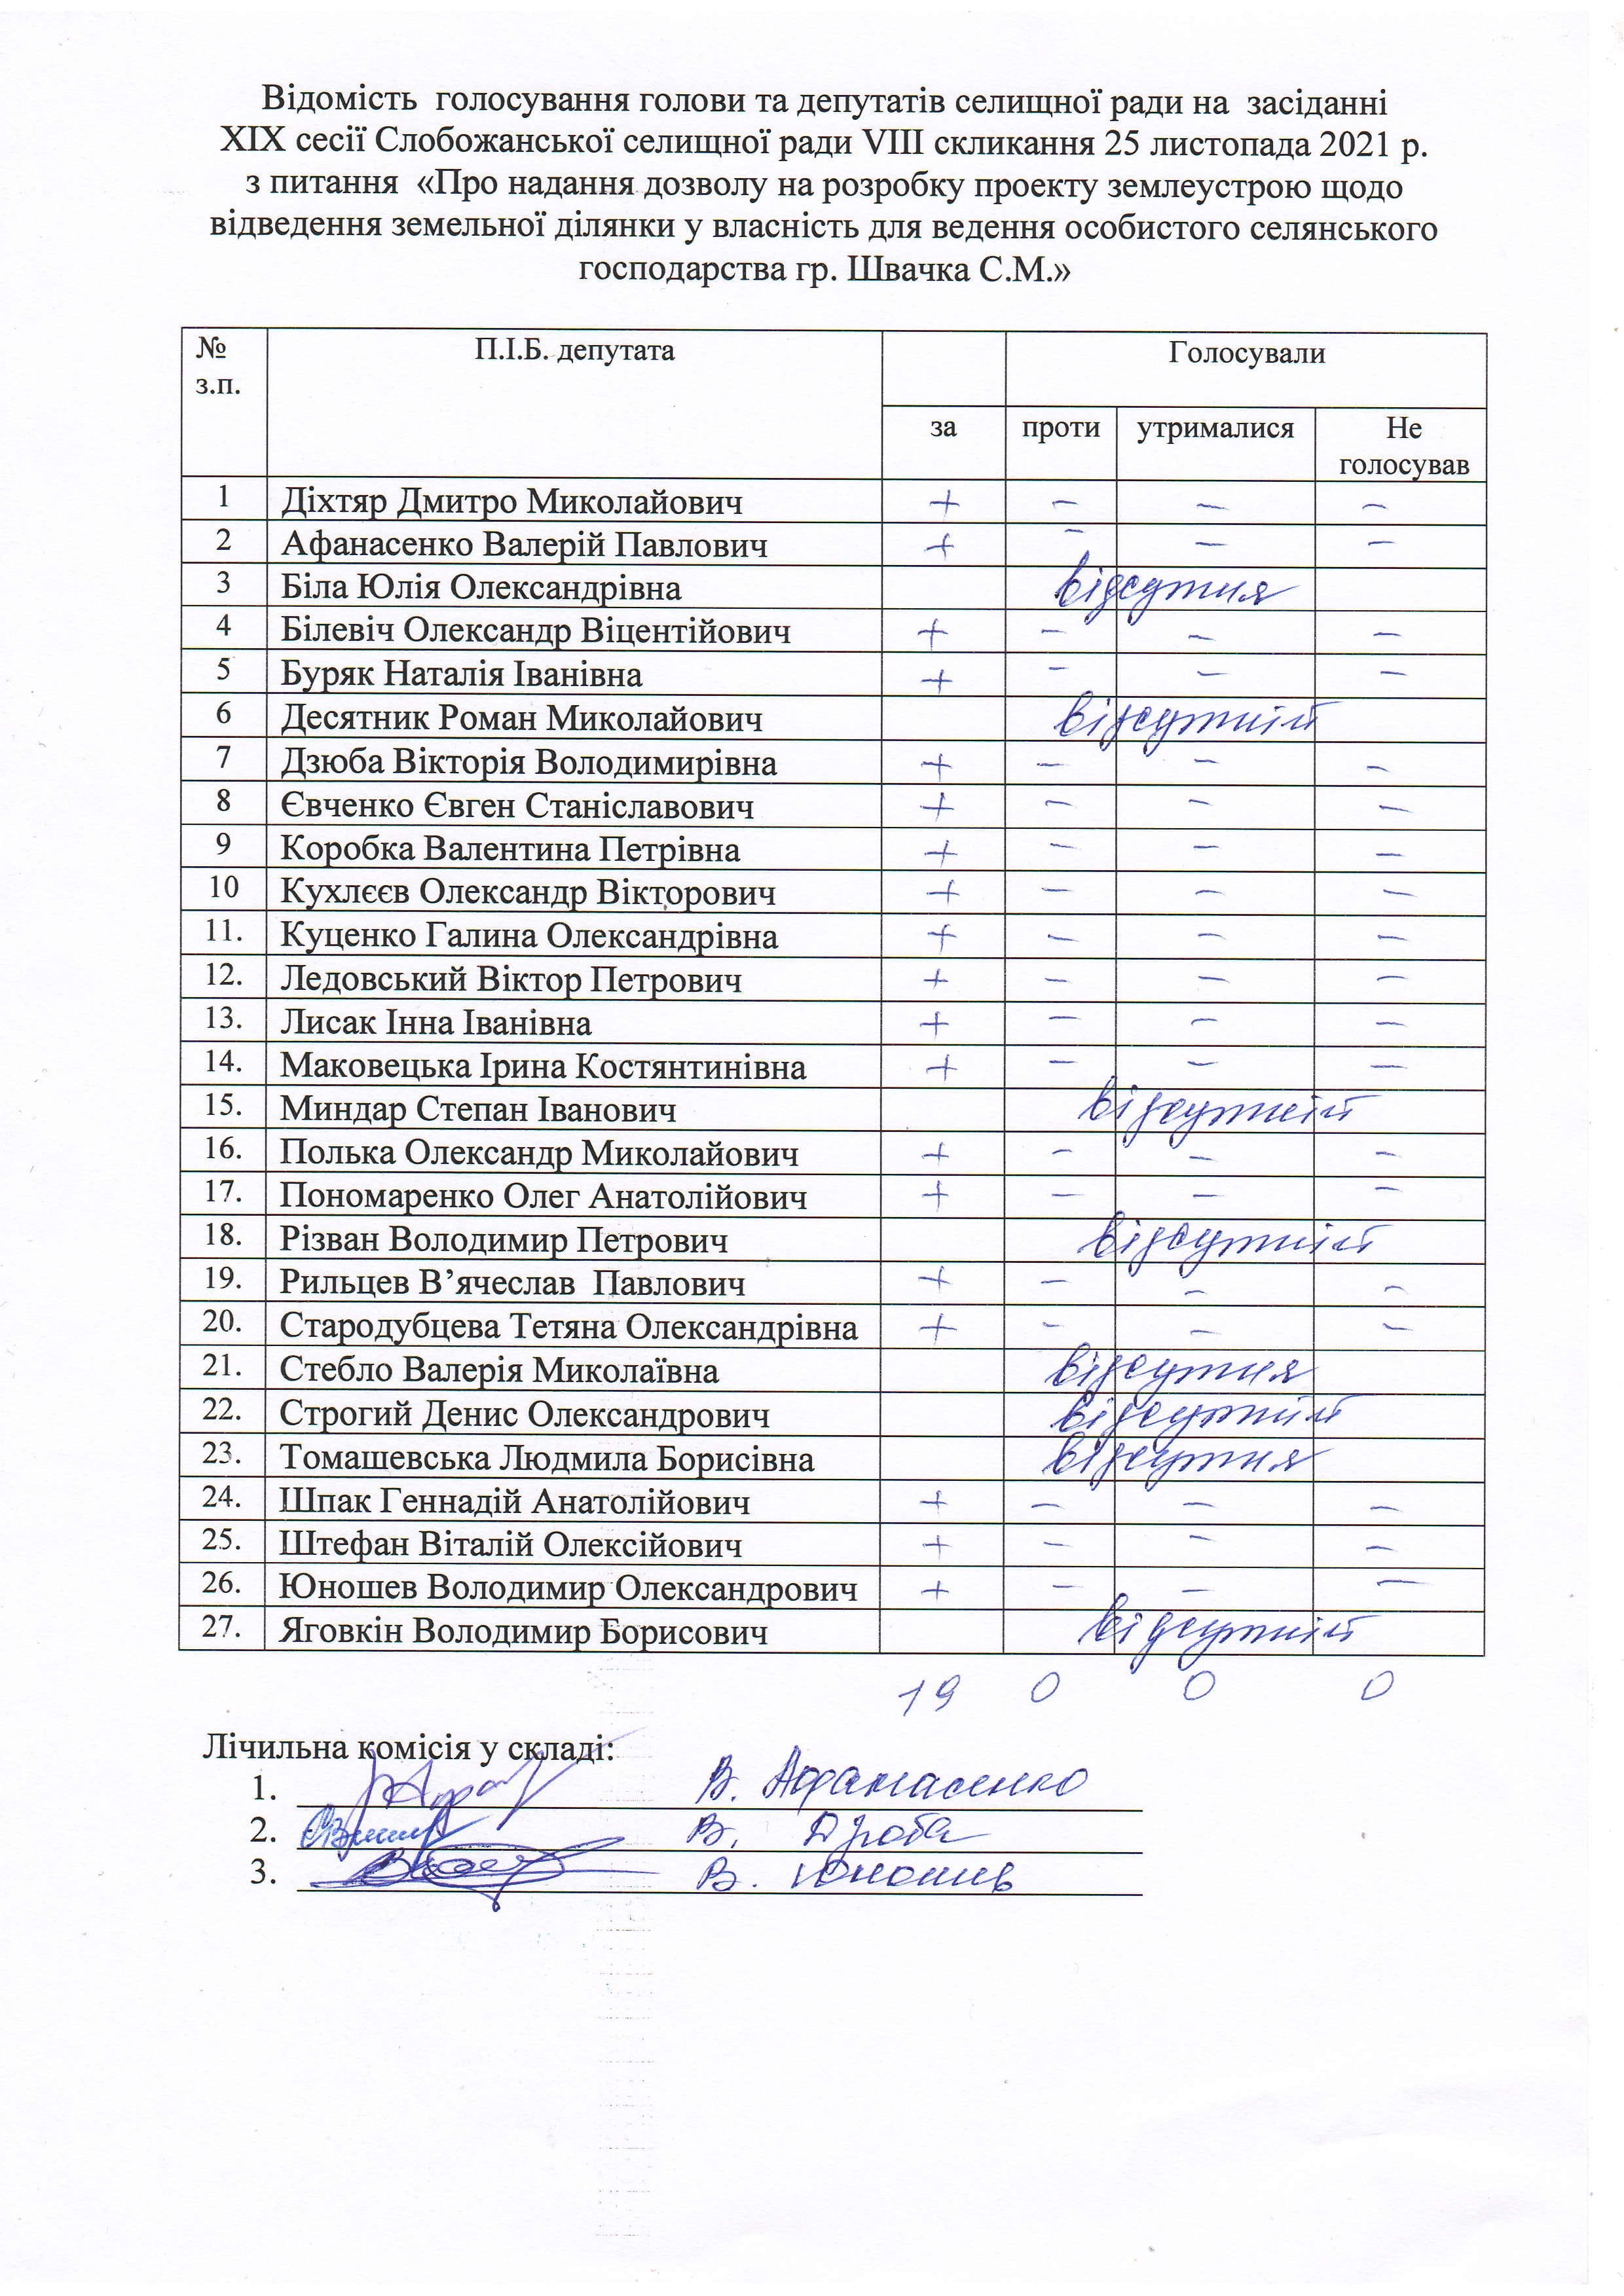 Відомість голосування голови та депутатів селищної ради на засіданні
XIX сесії Слобожанської селищної ради VIII скликання 25 листопада 2021 р.
з питання «Про надання дозволу на розробку проекту землеустрою щодо
відведення земельної ділянки у власність для ведення особистого селянського
господарства гр. Швачка С.М.»
№ з.п. П.І.Б. депутата Голосували
за проти утрималися Не голосував
1 Діхтяр Дмитро Миколайович + – – –
2 Афанасенко Валерій Павлович + – – –
3 Біла Юлія Олександрівна відсутня
4 Білевіч Олександр Віцентійович + – – –
5 Буряк Наталія Іванівна + – – –
6 Десятник Роман Миколайович відсутній
7 Дзюба Вікторія Володимирівна + – – –
8 Євченко Євген Станіславович + – – –
9 Коробка Валентина Петрівна + – – –
10 Кухлєєв Олександр Вікторович + – – –
11. Куценко Галина Олександрівна + – – –
12. Ледовський Віктор Петрович + – – –
13. Лисак Інна Іванівна + – – –
14. Маковецька Ірина Костянтинівна + – – –
15. Миндар Степан Іванович відсутній
16. Полька Олександр Миколайович + – – –
17. Пономаренко Олег Анатолійович + – – –
18. Різван Володимир Петрович відсутній
19. Рильцев В’ячеслав Павлович + – – –
20. Стародубцева Тетяна Олександрівна + – – –
21. Стебло Валерія Миколаївна відсутня
22. Строгий Денис Олександрович відсутній
23. Томашевська Людмила Борисівна відсутня
24. Шпак Геннадій Анатолійович + – – –
25. Штефан Віталій Олексійович + – – –
26. Юношев Володимир Олександрович + – – –
27. Яговкін Володимир Борисович відсутній
19 0 0 0
Лічильна комісія у складі:
1. В. Афанасенко
2. В. Дзюба
3. В. Юношев